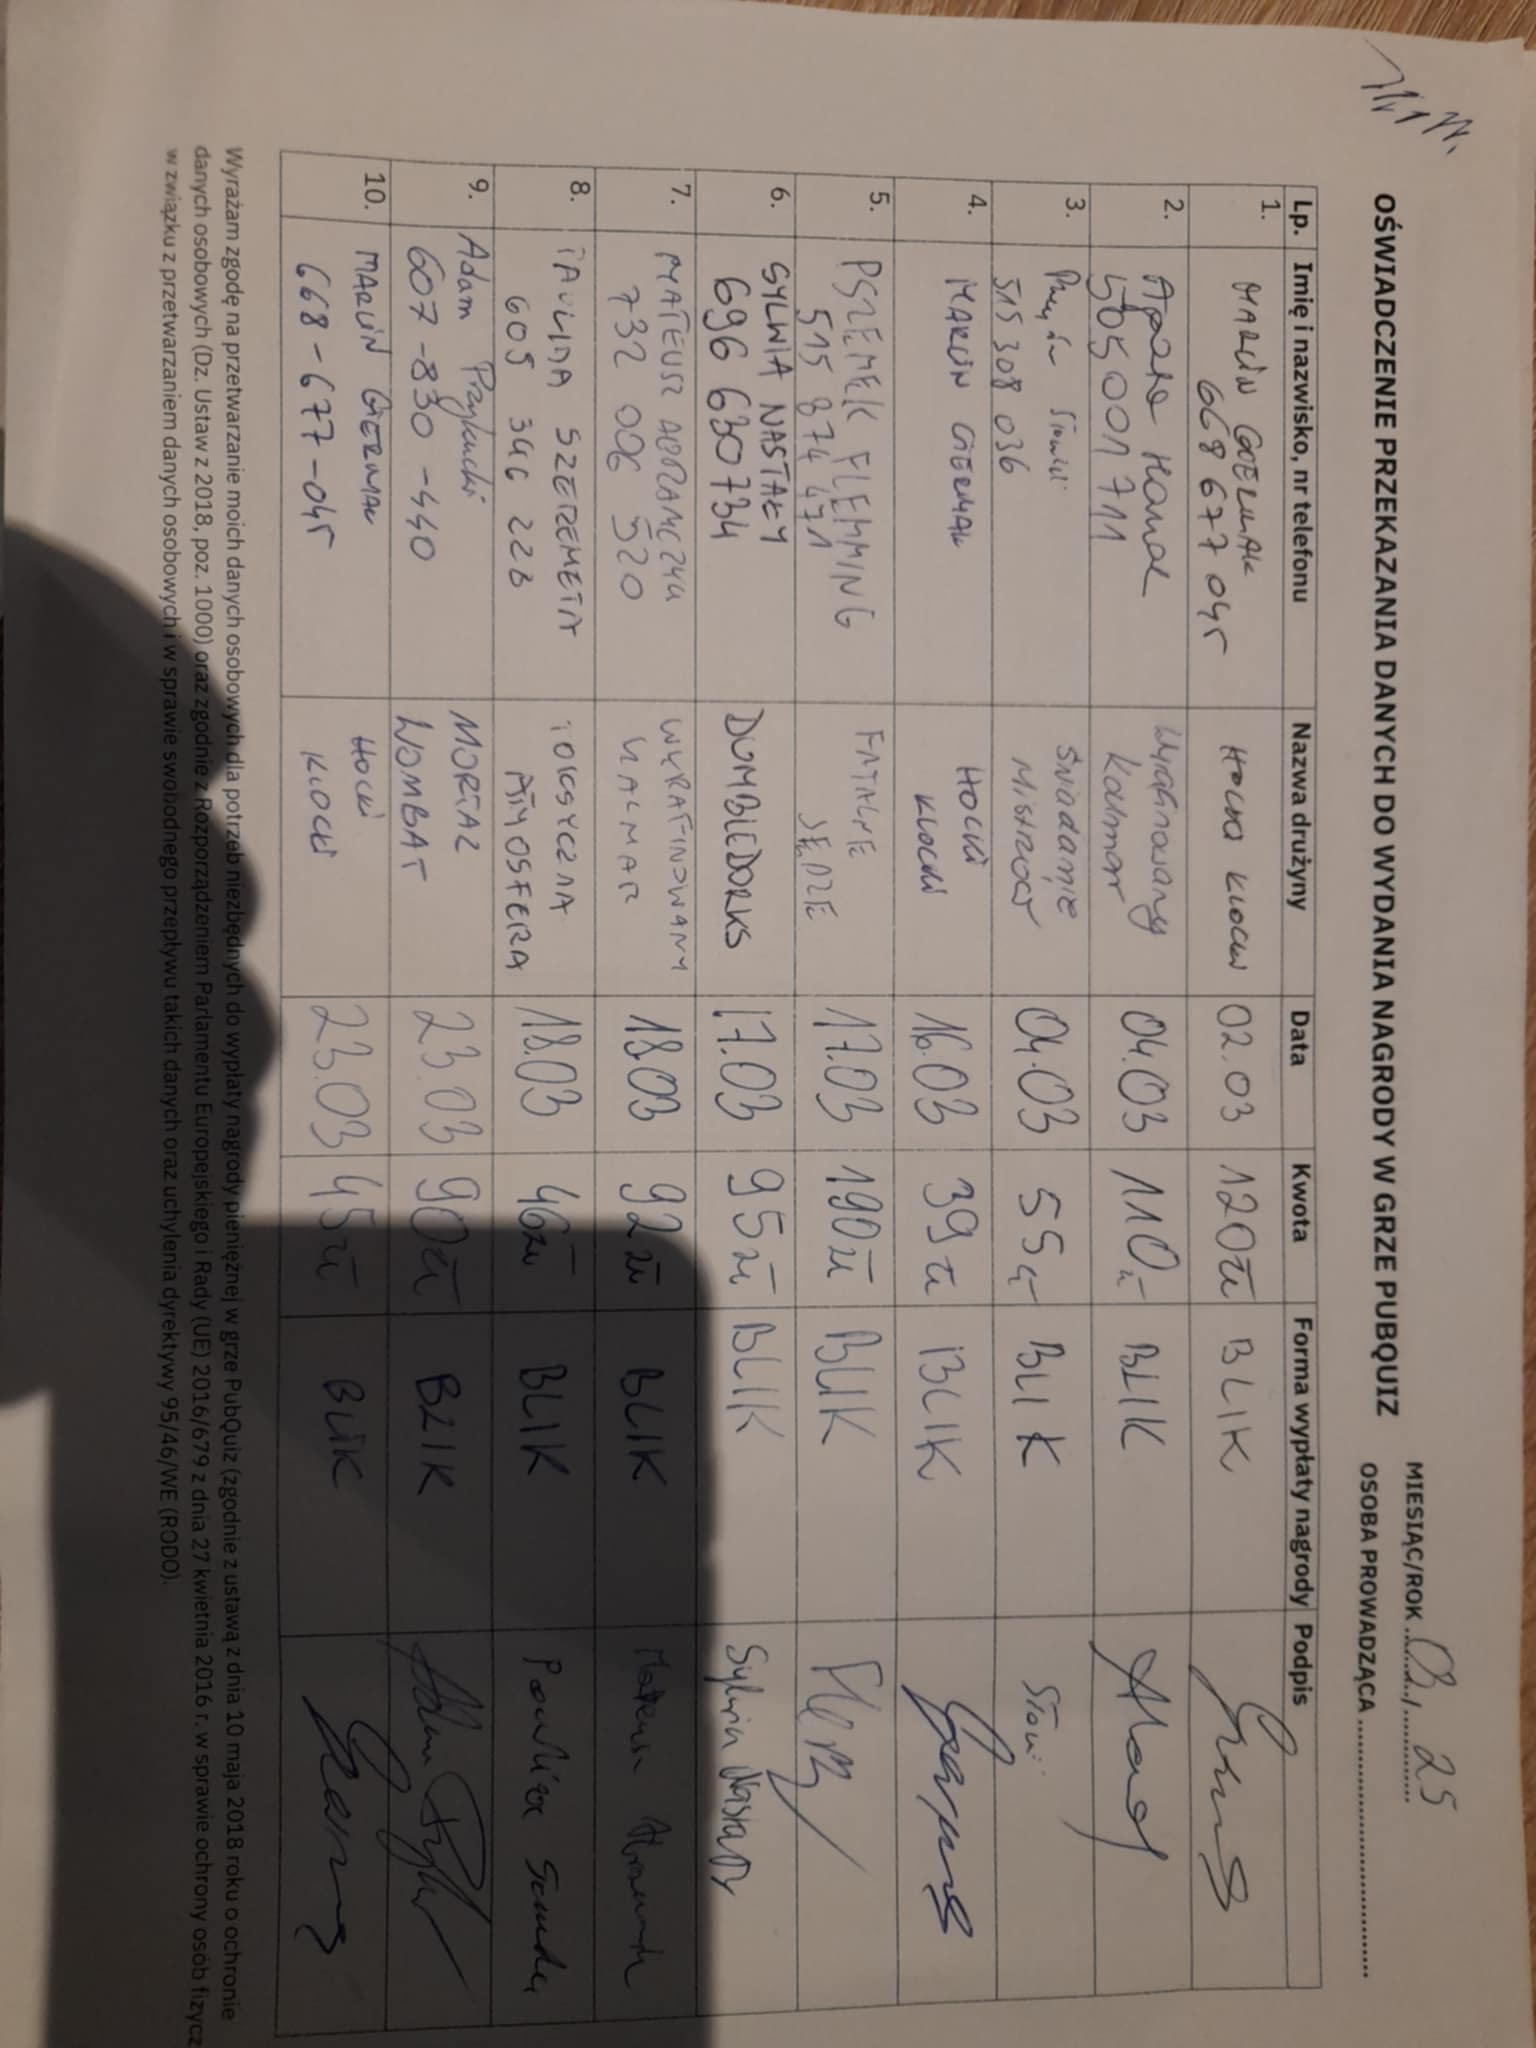 OŚWIADCZENIE PRZEKAZANIA DANYCH DO WYDANIA NAGRODY W GRZE PUBQUIZ
MIESIĄC/ROK 03 25
OSOBA PROWADZĄCA
Lp. Imię i nazwisko, nr telefonu Nazwa drużyny Data Kwota Forma wypłaty nagrody Podpis
1. MARCIN 02.03 120zł BLIK
668 677 045
2. 04.03 110zł BLIK
505 001 711 Kalmar
3. Śniadanie 04.03 55zł BLIK
515 308 036 Mistrzów
4. MARCIN GIERMAK HOCKI 16.03 39zł BLIK
KLOCKI
5. PSZEMEK FLEMMING FATALNE 17.03 190zł BLIK
515 874 471 SĘDZIE
6. SYLWIA NASTAŁY DUMBLEDORKS 17.03 95zł BLIK Sylwia Nastały
696 630 734
7. MATEUSZ WYRAFINOWANY 18.03 92zł BLIK
732 006 520 KALMAR
8. PAULINA SZEREMETA TOKSYCZNA 18.03 46zł BLIK
605 346 228 ATMOSFERA
9. Adam MORTAL 23.03 90zł BLIK
607-830-440 WOMBAT
10. MARCIN GIERMAK HOCKI 23.03 45zł BLIK
668-677-045 KLOCKI
Wyrażam zgodę na przetwarzanie moich danych osobowych dla potrzeb niezbędnych do wypłaty nagrody pieniężnej w grze PubQuiz (zgodnie z ustawą z dnia 10 maja 2018 roku o ochronie
danych osobowych (Dz. Ustaw z 2018, poz. 1000) oraz zgodnie z Rozporządzeniem Parlamentu Europejskiego i Rady (UE) 2016/679 z dnia 27 kwietnia 2016 r. w sprawie ochrony osób fizycz
w związku z przetwarzaniem danych osobowych i w sprawie swobodnego przepływu takich danych oraz uchylenia dyrektywy 95/46/WE (RODO).